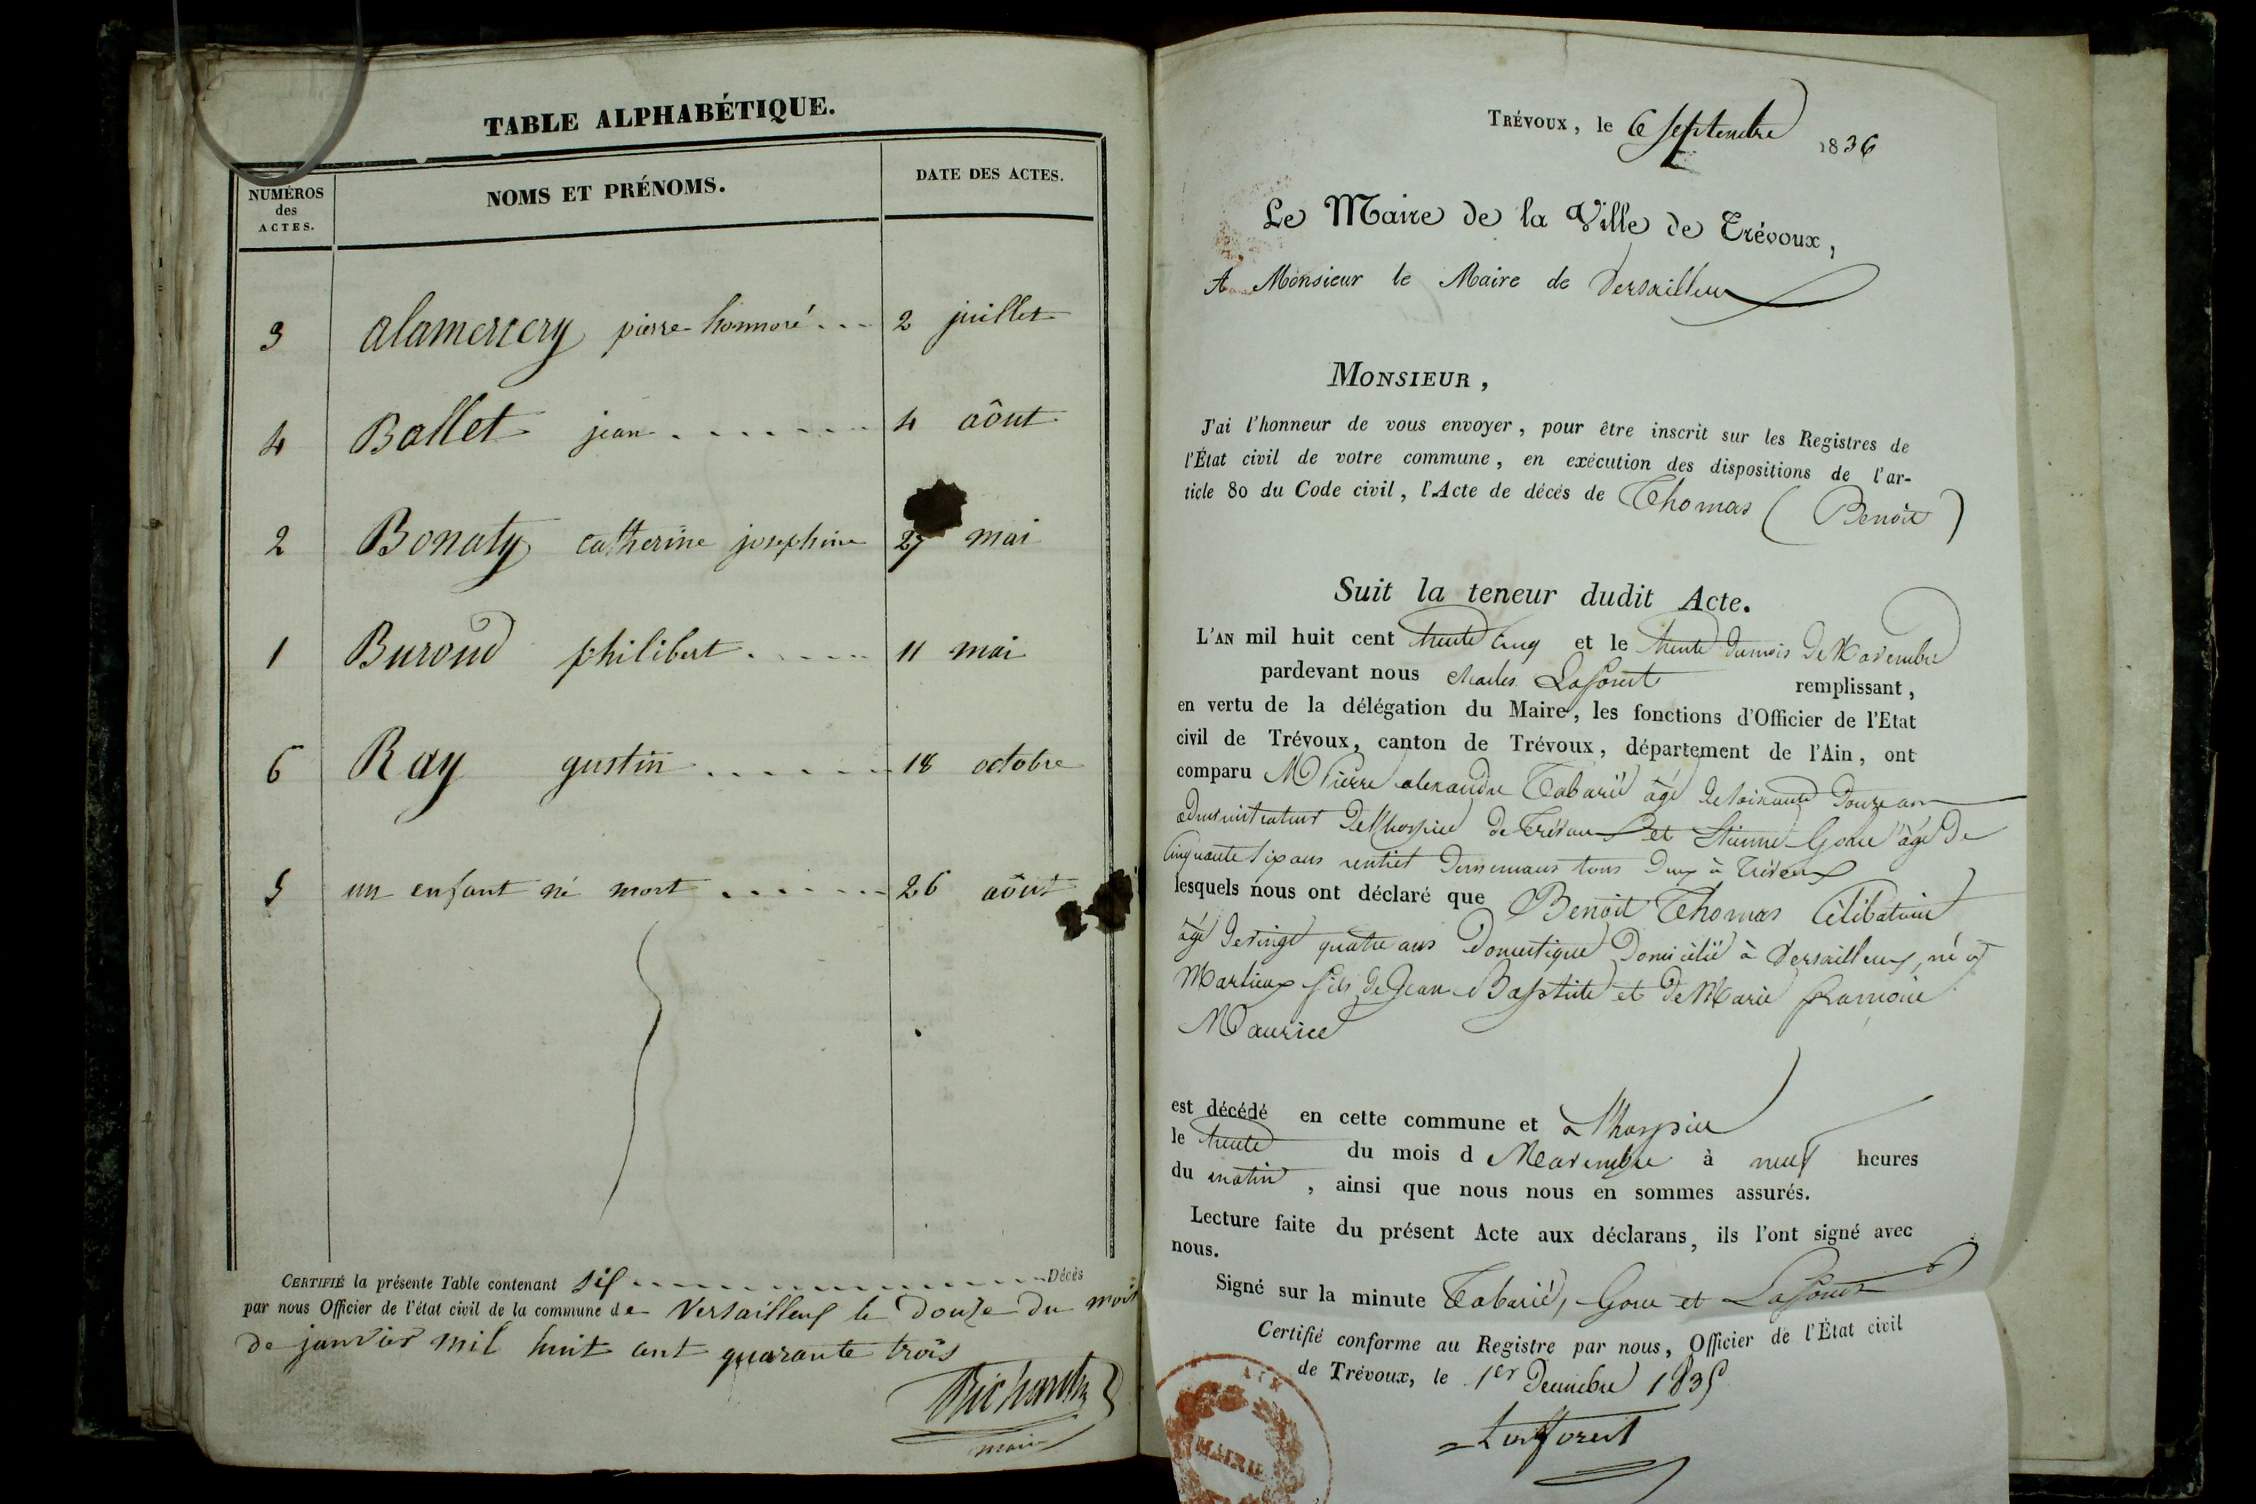 TABLE ALPHABÉTIQUE.
NUMÉROS des ACTES. NOMS ET PRÉNOMS. DATE DES ACTES.
3 alamercery pierre honnoré 2 juillet
4 Ballet jean 4 aôut
2 Bonaty catherine josephine 27 mai
1 Buroud philibert 11 mai
6 Ray gustin 18 octobre
5 un enfant né mort 26 aôut
CERTIFIÉ la présente Table contenant six Décès
par nous Officier de l'état civil de la commune de Versailleux le Douze du mois
de janvier mil huit cent quarante trois
Richardin
maire
TRÉVOUX, le 6 septembre 1836
Le Maire de la Ville de Trévoux,
A Monsieur le Maire de Versailleux
MONSIEUR,
J'ai l'honneur de vous envoyer, pour être inscrit sur les Registres de
l'État civil de votre commune, en exécution des dispositions de l'ar-
ticle 80 du Code civil, l'Acte de décés de Thomas (Benoit)
Suit la teneur dudit Acte.
L'AN mil huit cent trente cinq et le trente du mois de Novembre
pardevant nous Charles Lafforest remplissant,
en vertu de la délégation du Maire, les fonctions d'Officier de l'Etat
civil de Trévoux, canton de Trévoux, département de l'Ain, ont
comparu M Pierre alexandre Tabarié âgé de soixante Douze ans
administrateur de l'hospice de Trévoux et Etienne Goue âgé De
Cinquante six ans rentier demeurans tous deux à Trévoux
lesquels nous ont déclaré que Benoit Thomas Célibataire
âgé de vingt quatre ans Domestique Domicilié à Versailleux, né à
Marlieux fils de Jean Baptiste et de Marie françoise
Maurice
est décédé en cette commune et à l'hospice
le trente du mois d Novembre à neuf heures
du matin, ainsi que nous nous en sommes assurés.
Lecture faite du présent Acte aux déclarans, ils l'ont signé avec
nous.
Signé sur la minute Tabarié, Goue et Lafforest
Certifié conforme au Registre par nous, Officier de l'État civil
de Trévoux, le 1er Decembre 1835
Lafforest
AIN
MAIRIE